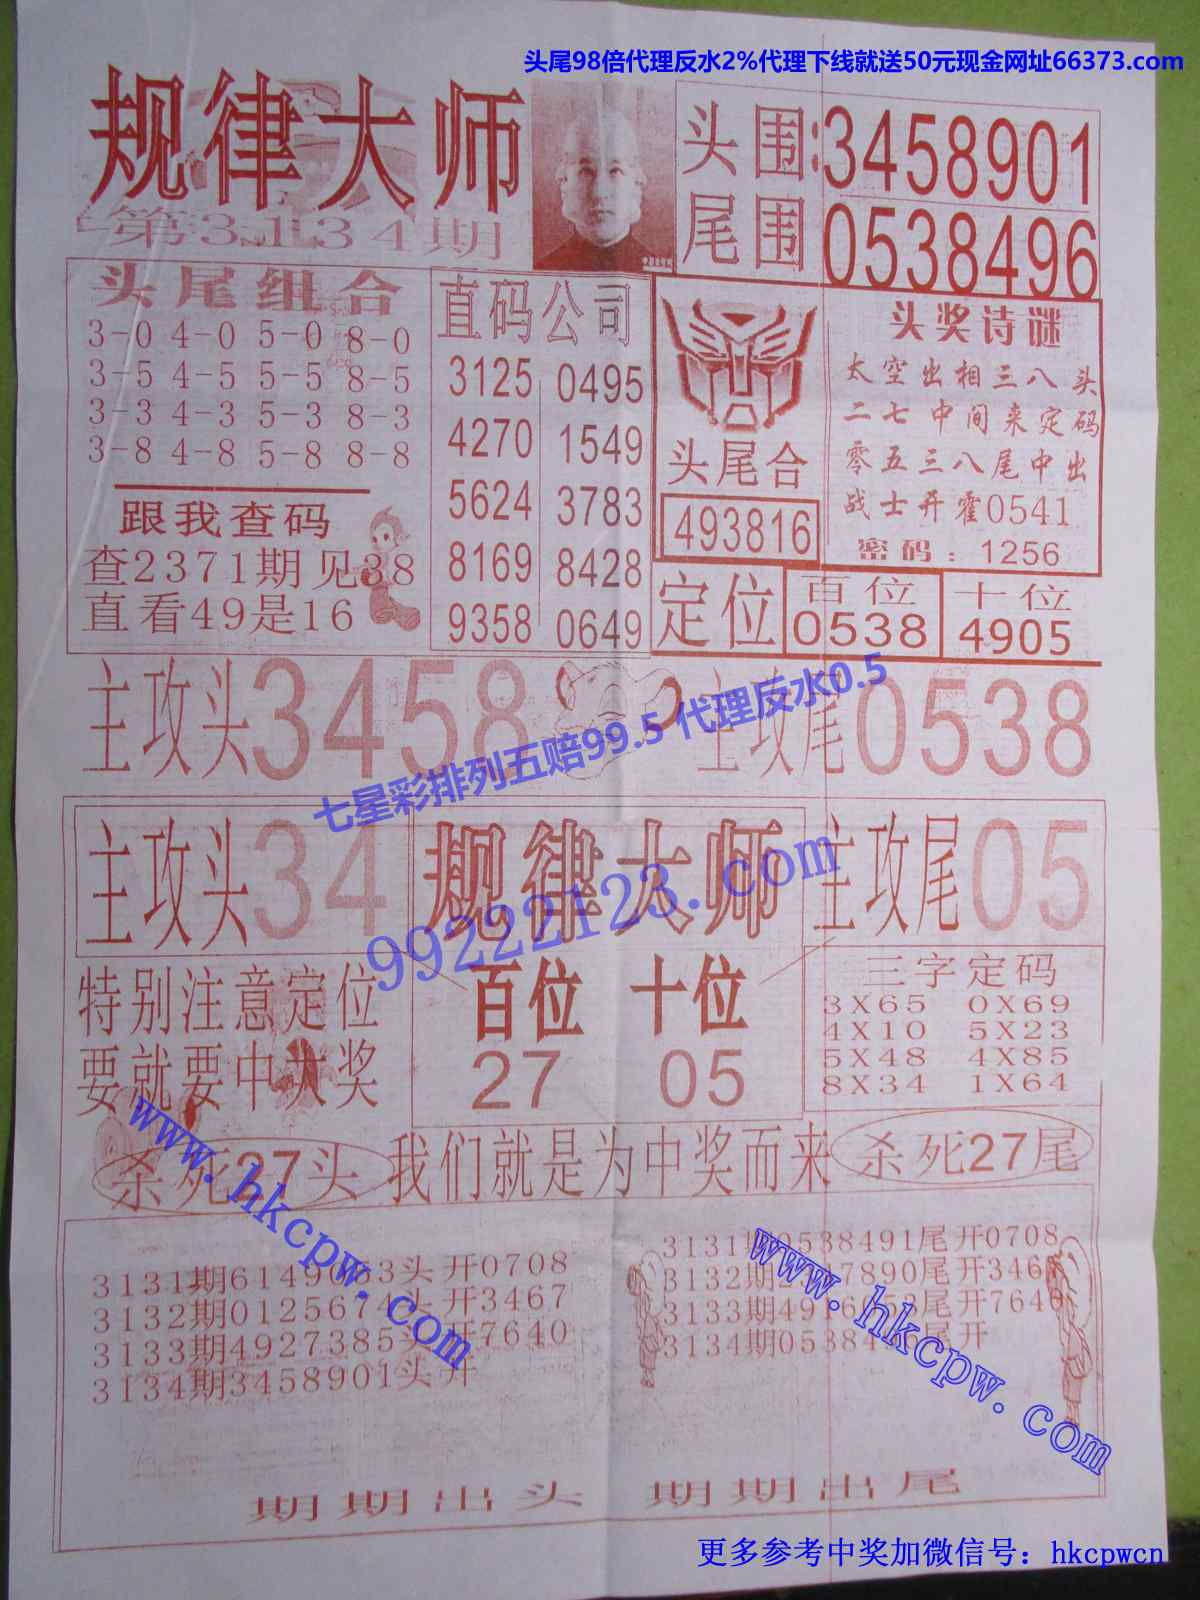 头尾98倍代理反水2%代理下线就送50元现金网址66373.com
规律大师
第3134期
头围:3458901
尾围 0538496
头尾组合
3-0 4-0 5-0 8-0
3-5 4-5 5-5 8-5
3-3 4-3 5-3 8-3
3-8 4-8 5-8 8-8
跟我查码
查2371期见38
直看49是16
直码公司
3125 0495
4270 1549
5624 3783
8169 8428
9358 0649
头尾合
493816
头奖诗谜
太空出相三八头
二七中间来定码
零五三八尾中出
战士开霍0541
密码：1256
定位
百位
0538
十位
4905
主攻头3458
主攻尾0538
七星彩排列五赔99.5 代理反水0.5
主攻头34
规律大师
主攻尾05
99222123.com
特别注意定位
要就要中大奖
百位 十位
27 05
三字定码
3X65 0X69
4X10 5X23
5X48 4X85
8X34 1X64
杀死27头
我们就是为中奖而来
杀死27尾
www.hkcpw.com
www.hkcpw.com
3131期6149053头开0708
3132期0125674头开3467
3133期4927385头开7640
3134期3458901头开
3131期0538491尾开0708
3132期 7890尾开3467
3133期4916 尾开7640
3134期0538496尾开
期期出头 期期出尾
更多参考中奖加微信号：hkcpwcn